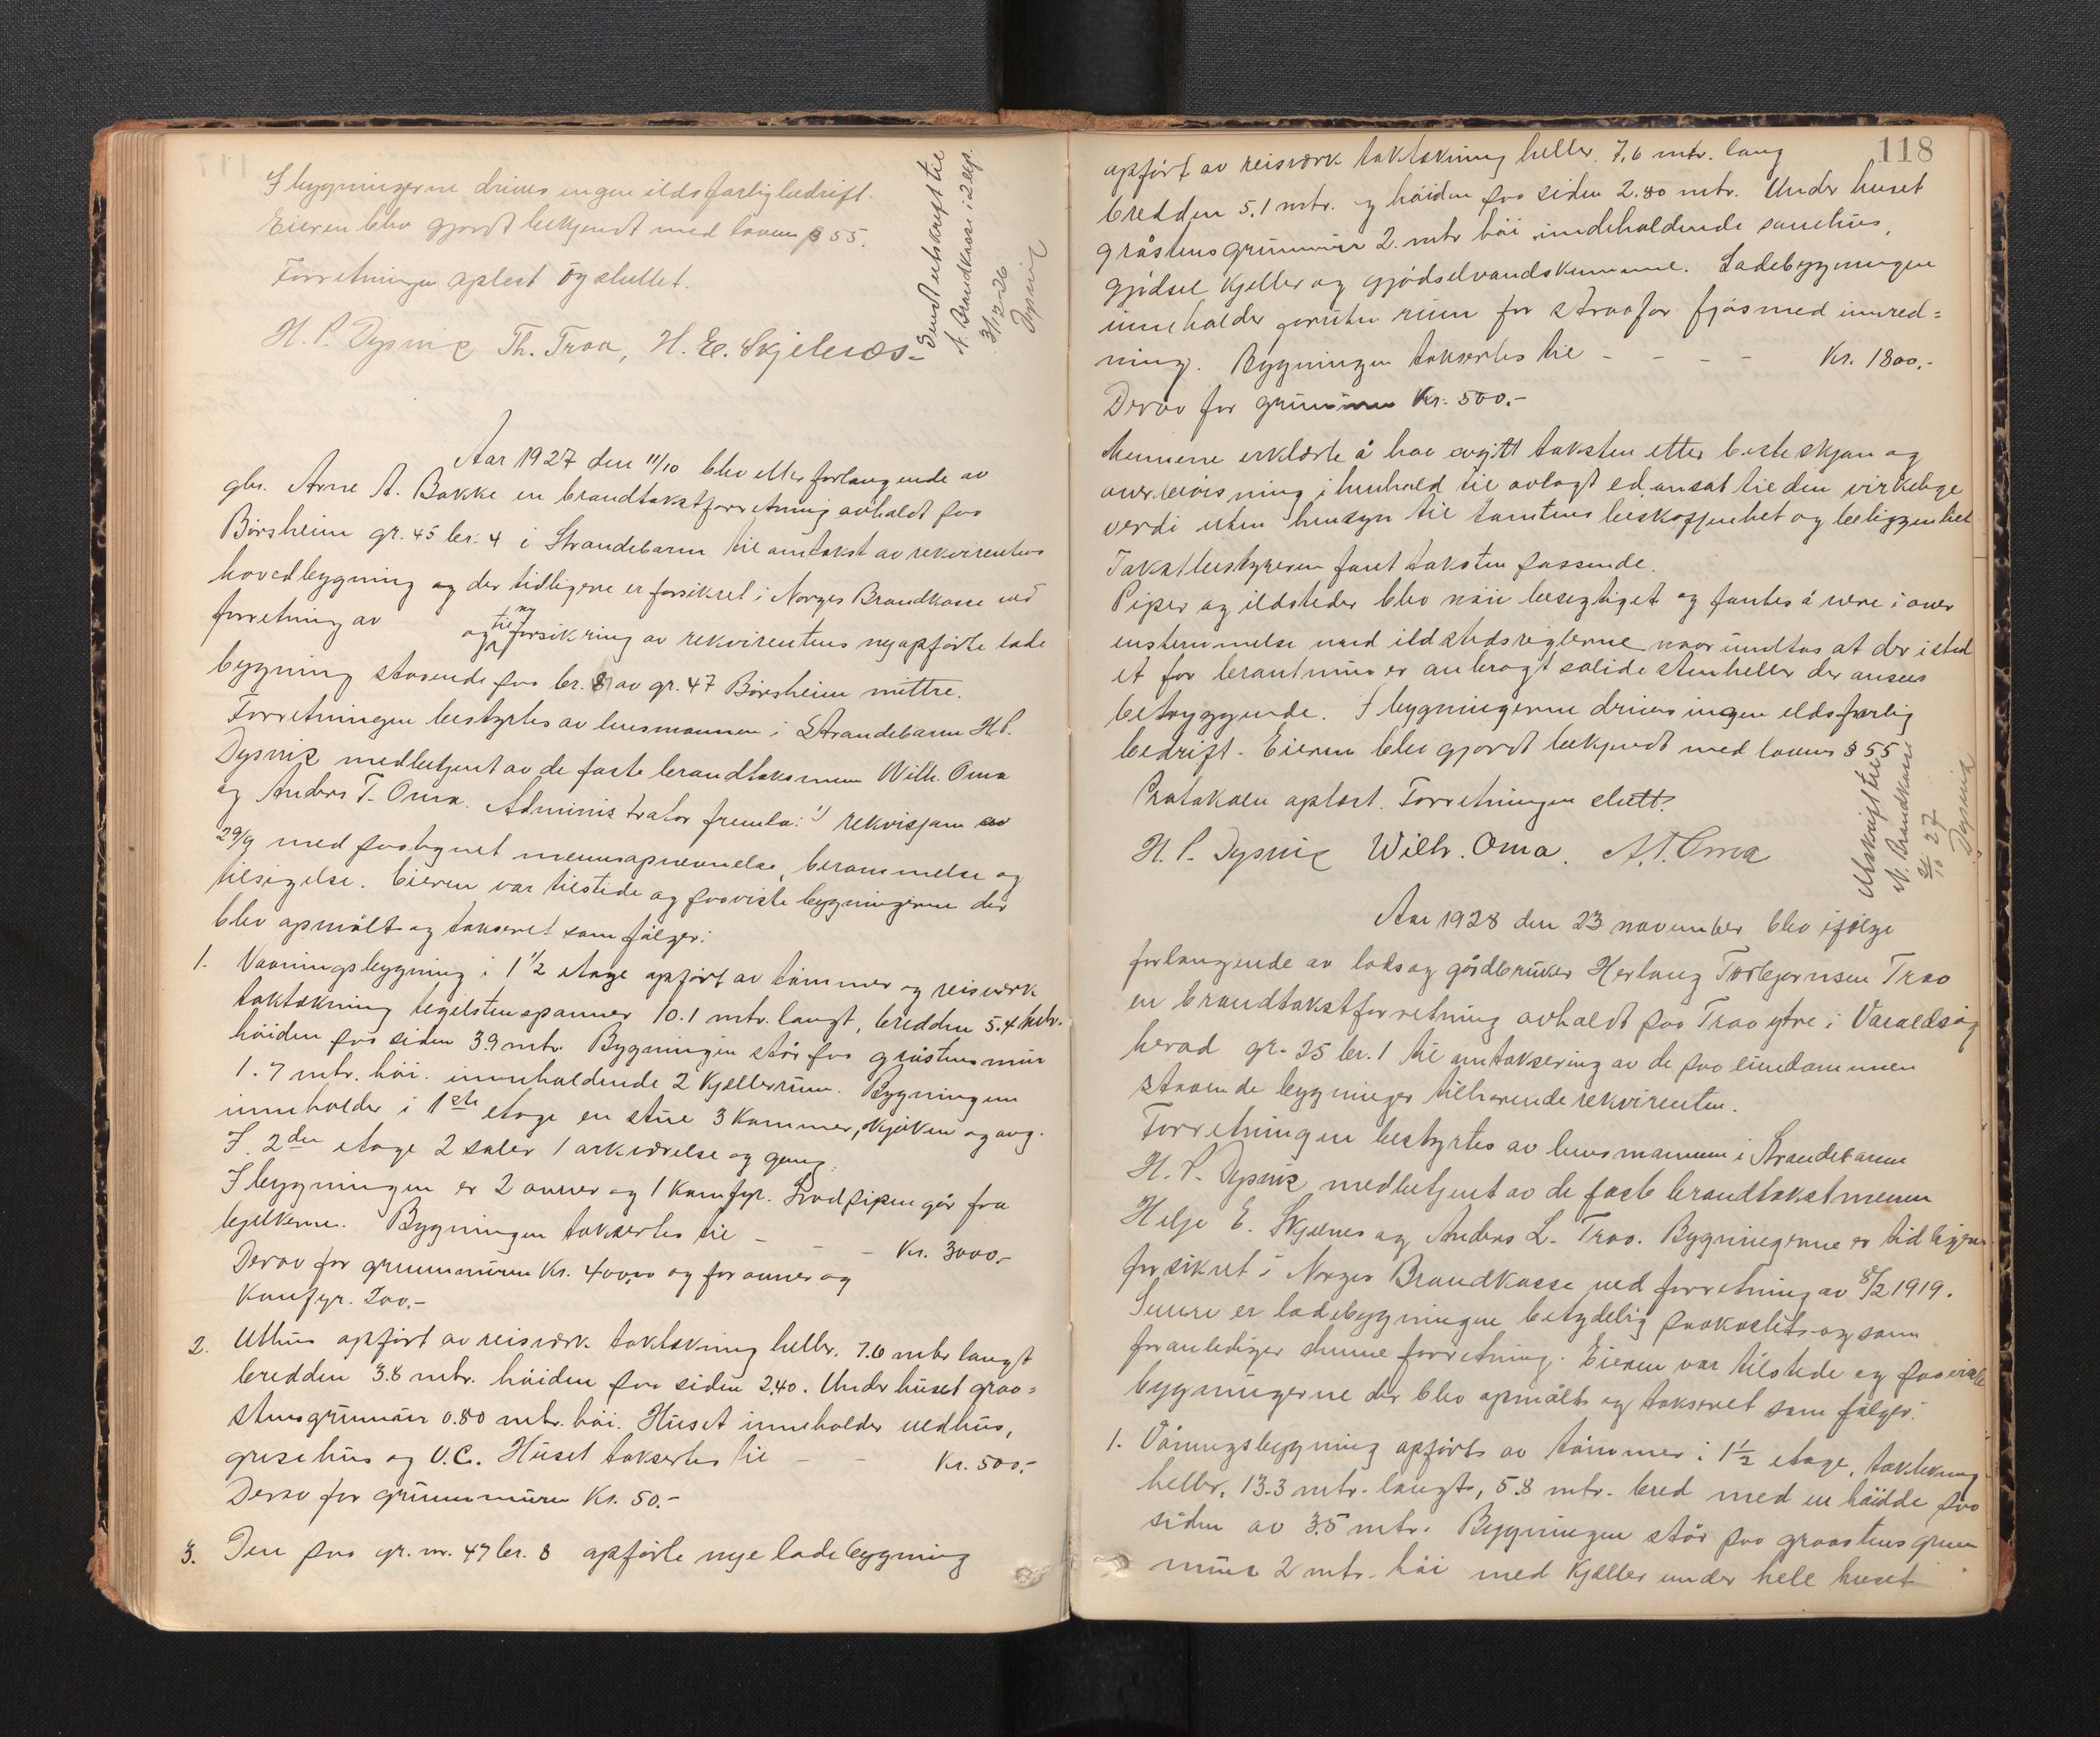 I bygningerne drives ingen ildsfarlig bedrift.
Eieren blev gjordt bekjendt med lovens § 55.
Forretningen oplest og sluttet.
H. P. Dysvig Th. Traa, H. E. Skjelnæs
Sendt utskrift til
N. Brandkasse i 2 exp.
31-12-26
Dysvig
Aar 1927 den 11/10 blev efter forlangende av
gbr. Arne A. Bakke en brandtakstforretning avholdt paa
Børsheim gr. 45 br. 4 i Strandebarm til omtakst av rekvirentens
hovedbygning og der tidligere er forsikret i Norges Brandkasse ved
forretning av og til ny forsikring av rekvirentens nyopførte lade
bygning staaende paa br. 8 av gr. 47 Børsheim mittre.
Forretningen bestyrtes av lensmannen i Strandebarm H.P.
Dysvig medbetjent av de faste brandtaksmenn Wilh. Oma
og Anders T. Oma. Administrator fremla: 1) rekvisjon av
29/9 med paategnet mennsopnevnelse, berammelse og
tilsigelse. Eieren var tilstede og paaviste bygningerne der
blev opmålt og taksert som følger:
1. Vaaningsbygning i 1 1/2 etage opført av tømmer og reisverk
taktekning teglstenspanner 10.1 mtr. langt, bredden 5,4 mtr.
høiden paa siden 3.9 mtr. Bygningen står paa gråstensmur
1.7 mtr. høi. inneholdende 2 kjellerrum. Bygningen
inneholder i 1ste etage en stue 3 kammer, kjøken og gang.
I 2den etage 2 saler 1 arkværelse og gang.
I bygningen er 2 ovner og 1 komfyr. Pipen går fra
kjelleren. Bygningen taksertes til - - - Kr. 3000,-
Derav for grunnmuren Kr. 400,00 og for ovner og
Komfyr. 200,-
2. Uthus opført av reisverk taktekning heller, 7.6 mtr langt
bredden 3.8 mtr. høiden paa siden 2,40. Under huset graa=
stensgrunmur 0.80 mtr. høi. Huset inneholder vedhus,
grisehus og V.C. Huset taksertes til - - Kr. 500,-
Derav for grunnmuren Kr. 50,-
3. Den paa gr. nr. 47 br. 8 opførte nye ladebygning
118
opført av reisverk taktekning heller. 7,6 mtr. lang
bredden 5,1 mtr. og høiden paa siden 2.80 mtr. Under huset
gråstensgrunnmur 2. mtr høi indeholdende sauehus,
gjødsel kjeller og gjødselvandskumme. Ladebygningen
inneholder foruten rum for straafor fjøs med innred=
ning. Bygningen taksertes til - - - - Kr. 1800,-
Derav for grunmuren Kr. 500,-
Mennene erklærte å ha avgitt taksten etter beste skjøn og
overbevisning i henhold til avlagt ed, ansat til den virkelige
verdi uten hensyn til tomtens beskaffenhet og beliggenhet
Takstbestyreren fant taksten passende.
Piper og ildsteder blev nøie besegtiget og fantes å være i over
enstemmelse med ildstedsreglerne naar undtas at der i sted
et for brantmur er anbragt solide stenheller der ansees
betryggende. I bygningerne drives ingen ildsfarlig
bedrift. Eieren blev gjordt bekjendt med lovens § 55
Protokolen oplæst. Forretningen slutt.
H. P. Dysvig Wilh. Oma. A. T. Oma
Utskrift til
N. Brandkasse
21/10 27
Dysvig
Aar 1928 den 23 november blev ifølge
forlangende av lods og gårdbruker Herlaug Torbjørnsen Traa
en brandtakstforretning avholdt paa Traa ytre i Varaldsøy
herad gr. 25 br. 1 til omtaksering av de paa eiendommen
staaende bygninger tilhørende rekvirenten.
Forretningen bestyrtes av lensmannen i Strandebarm
H. P. Dysvig medbetjent av de faste brandtakstmenn
Helje E. Skjelnes og Anders L. Traa. Bygningerne er tidligere
forsikret i Norges Brandkasse ved forretning av 8/2 1919.
Senere er ladebygningen betydelig paakostet og som
foranlediger denne forretning. Eieren var tilstede og paaviste
bygningerne der blev opmålt og taksert som følger:
1. Våningsbygning opført av tømmer i 1 1/2 etage, taktekning
heller, 13.3 mtr. langt, 5,8 mtr. bred med en høidde paa
siden av 3,5 mtr. Bygningen står paa graastens grun
mur 2 mtr. høi med kjeller under hele huset